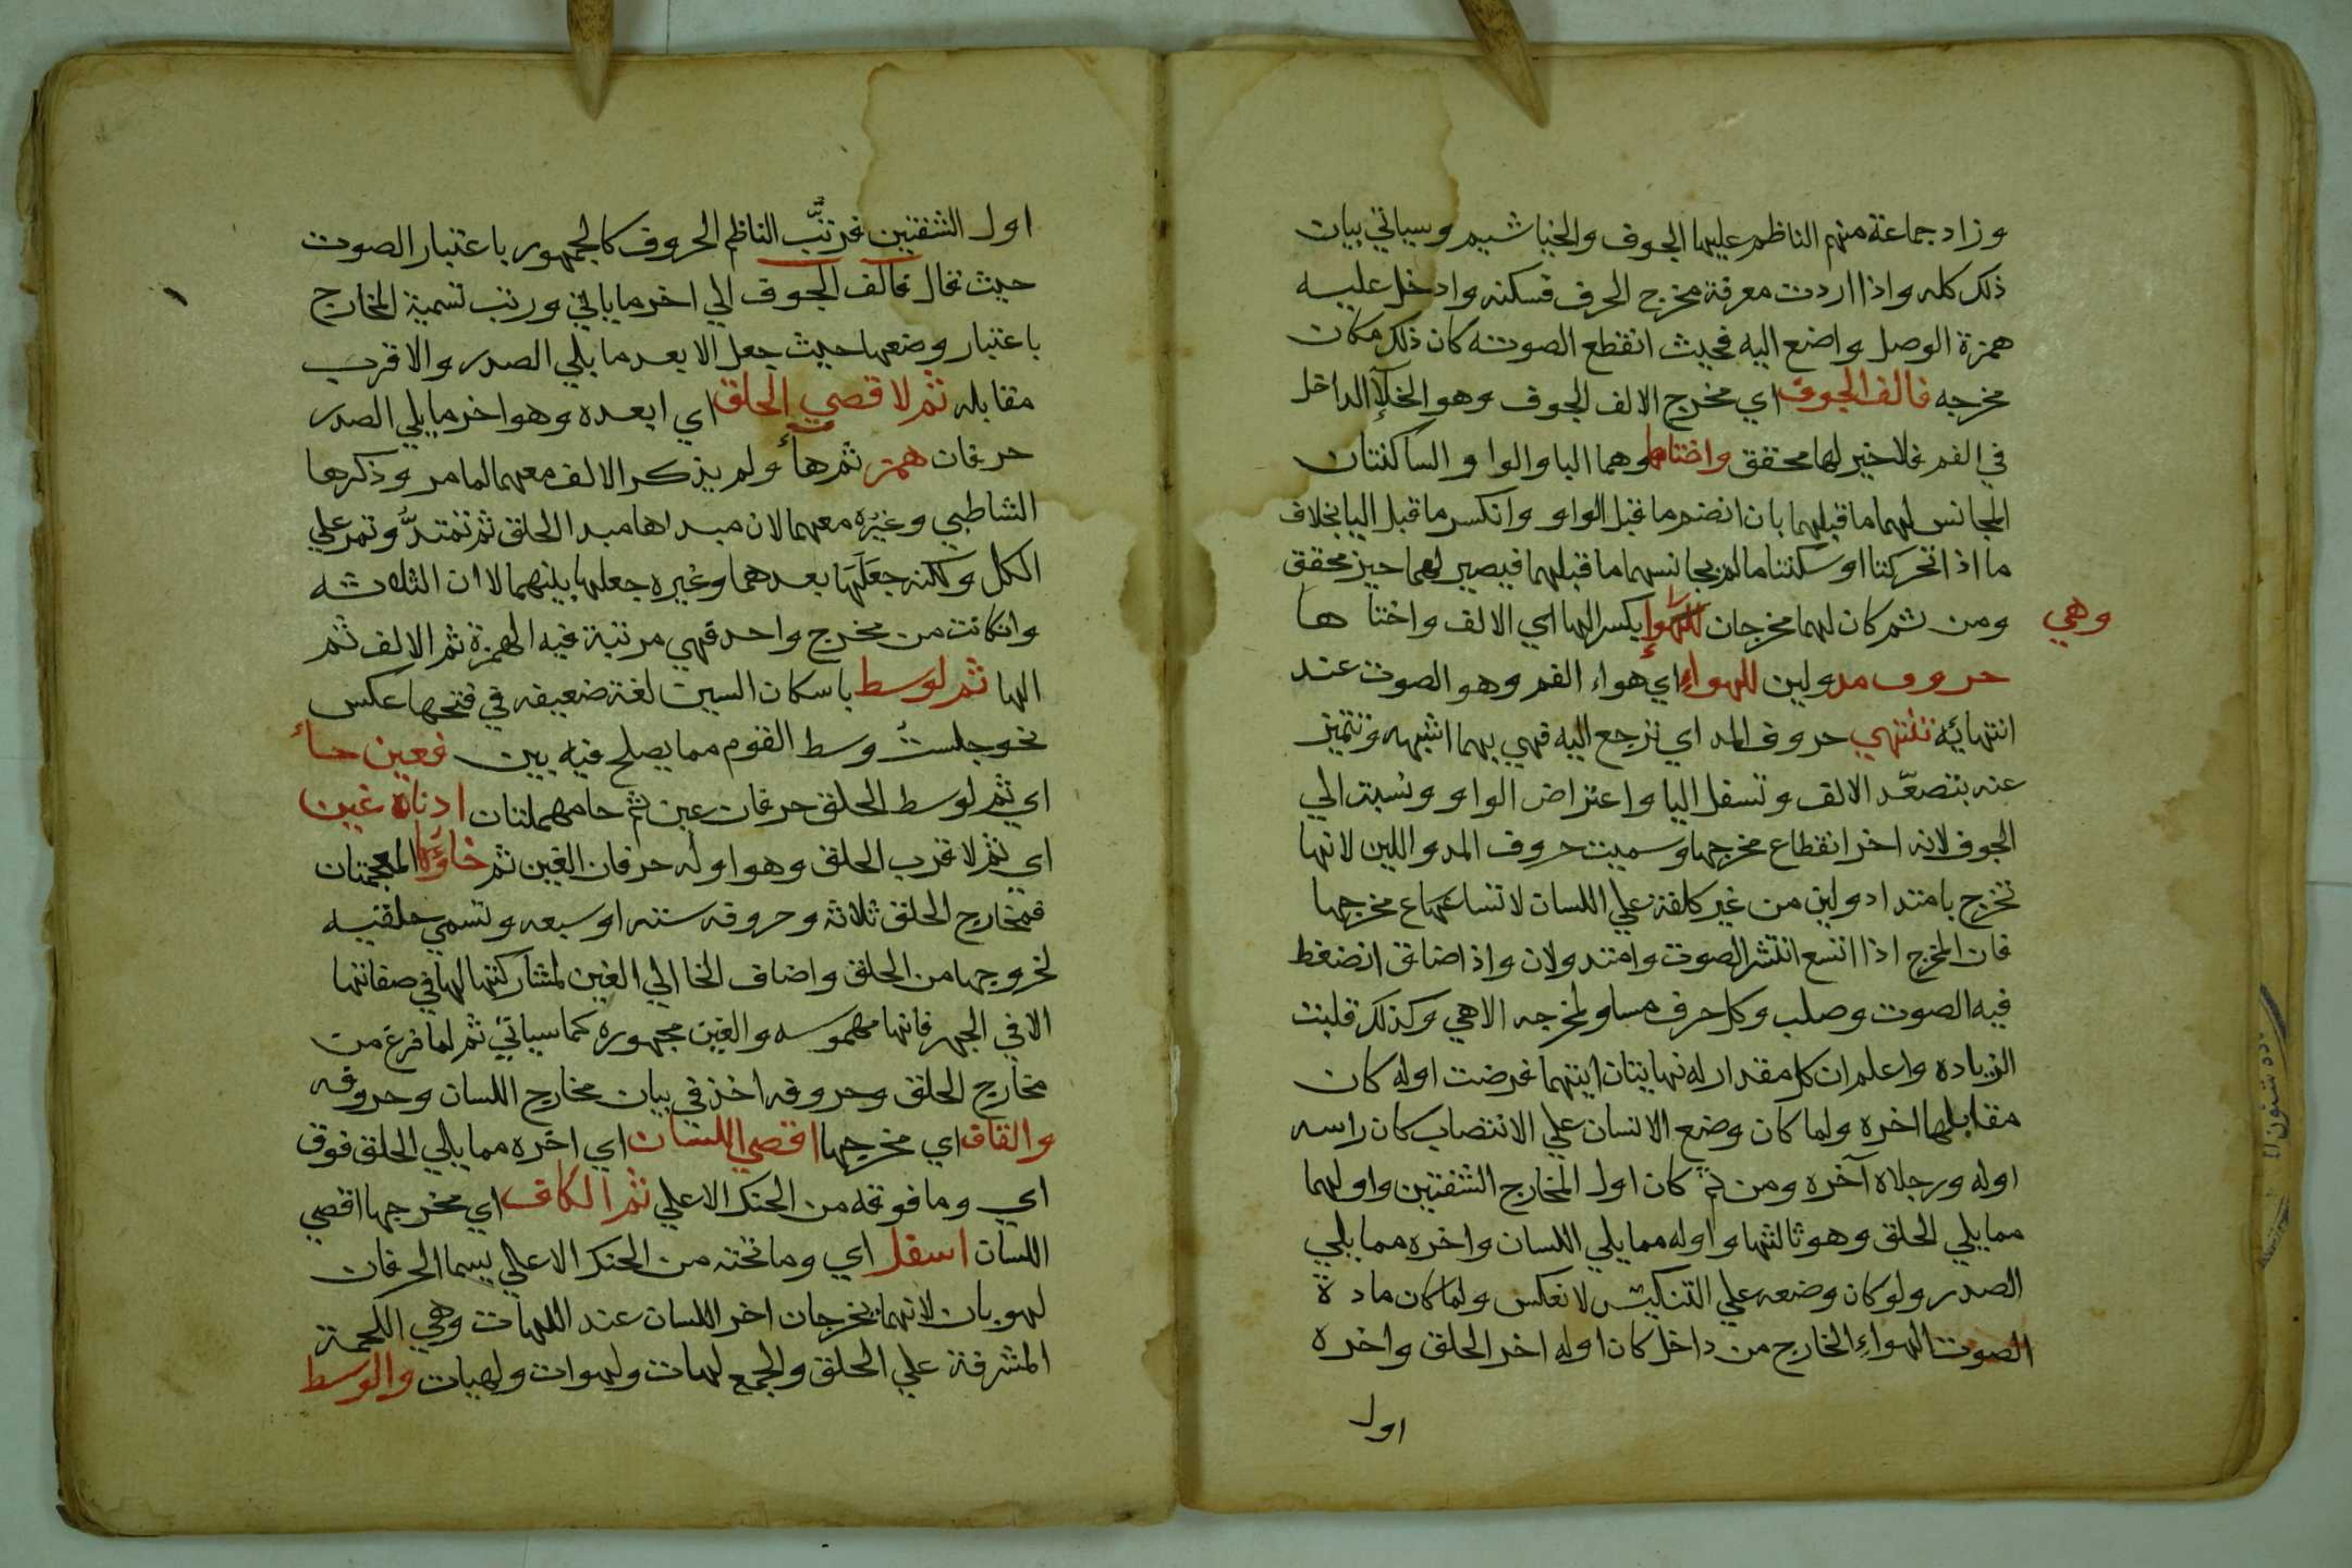 وزاد جماعة منهم الناظم عليها الجوف والخياشيم وسياتي بيان
ذلك كله واذا اردت معرفة مخرج الحرف فسكنه وادخل عليه
همزة الوصل واضع اليه فحيث انقطع الصوت كان ذلك مكان
مخرجه فالف الجوف اي مخرج الالف الجوف وهو الخلآ الداخل
في الفم فلا خيز لها محقق واختاها وهما اليا والواو الساكنتان
المجانس لهما ما قبلهما بان انضم ما قبل الواو وانكسر ما قبل اليا بخلاف
ما اذا تحركتا او سكنتا ما لم يجانسهما ما قبلهما فيصير لهما حيز محقق
وهي
ومن ثم كان لهما مخرجان بكسر الها اي الالف واختاها
حروف مد ولين للهواء اي هواء الفم وهو الصوت عند
انتهائه تنتهي حروف المد اي ترجع اليه فهي بهما اشبه وتتميز
عنه بتصعّد الالف وتسفل اليا واعتراض الواو ونسبت الي
الجوف لانه اخر انقطاع مخرجها وسميت حروف المد واللين لانها
تخرج بامتداد ولين من غير كلفة علي اللسان لاتساع مخرجها
فان المخرج اذا اتسع انتشر الصوت وامتد ولان واذا ضاق انضغط
فيه الصوت وصلب وكل حرف مساو لمخرجه الا هي وكذلك قلبت
الزياده واعلم ان كل مقدار له نهايتان ايتهما فرضت اوله كان
مقابلها اخره ولما كان وضع الانسان علي الانتصاب كان راسه
اوله ورجلاه آخره ومن ثم كان اول المخارج الشفتين واولهما
مما يلي الحلق وهو ثالثها واوله مما يلي اللسان واخره مما يلي
الصدر ولو كان وضعه علي التنكيس لانعكس ولما كان مادة
الصوت الهواء الخارج من داخل كان اوله اخر الحلق واخره
اول
اول الشفتين فرتّب الناظم الحروف كالجمهور باعتبار الصوت
حيث قال فالف الجوف الي اخر ما ياتي ورتب تسمية المخارج
باعتبار وضعها حيث جعل الابعد ما يلي الصدر والاقرب
مقابله ثم لاقصي الحلق اي ابعده وهو اخر ما يلي الصدر
حرفان همز ثم هاء ولم يذكر الالف معهما لما مر وذكرها
الشاطبي وغيره معهما لان مبداها مبدا الحلق ثم تمتدّ وتمر علي
الكل ولكنه جعلها بعدهما وغيره جعلها بينهما لان الثلاثه
وان كانت من مخرج واحد فهي مرتبة فيه الهمزة ثم الالف ثم
الها ثم لوسط باسكان السين لغة ضعيفه في فتحها عكس
نحو جلست وسط القوم مما يصلح فيه بين فعين حاء
اي ثم لوسط الحلق حرفان عين ثم حا مهملتان ادناه غين
اي ثم لاقرب الحلق وهو اوله حرفان الغين ثم خاؤها المعجمتان
فمخارج الحلق ثلاثة وحروفه سته او سبعه وتسمي حلقيه
لخروجها من الحلق واضاف الخا الي الغين لمشاركتها لها في صفاتها
الا في الجهر فانها مهموسه والغين مجهوره كما سياتي ثم لما فرغ من
مخارج الحلق وحروفه اخذ في بيان مخارج اللسان وحروفه
والقاف اي مخرجها اقصي اللسان اي اخره مما يلي الحلق فوق
اي وما فوقه من الحنك الاعلي ثم الكاف اي مخرجها اقصي
اللسان اسفل اي وما تحته من الحنك الاعلي يسما الحرفان
لهويان لانهما يخرجان اخر اللسان عند اللهات وهي اللحمة
المشرفة علي الحلق والجمع لهات ولهوات ولهيات والوسط